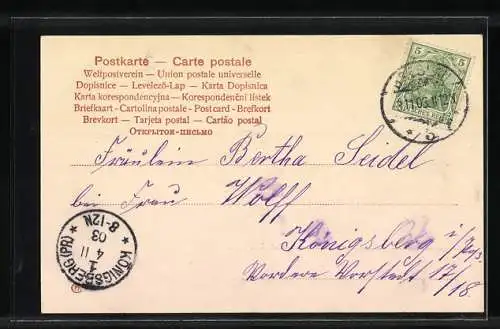 Postkarte — Carte postale
Weltpostverein — Union postale universelle
Dopisnice — Levelező-Lap — Karta Dopisnica
Karta korespondencyjna — Korespondenční lístek
Briefkaart - Cartolina postale - Post-card - Brefkort
Brevkort — Tarjeta postal — Cartão postal
ОТКРЫТОЕ-ПИСЬМО
5 5
Fräulein Bertha Seidel
bei Frau Wolff
Königsberg i/Pr.
Vordere Vorstadt 17/18
★ KÖNIGSBERG (PR) ★
1
4 11
03
8-12N